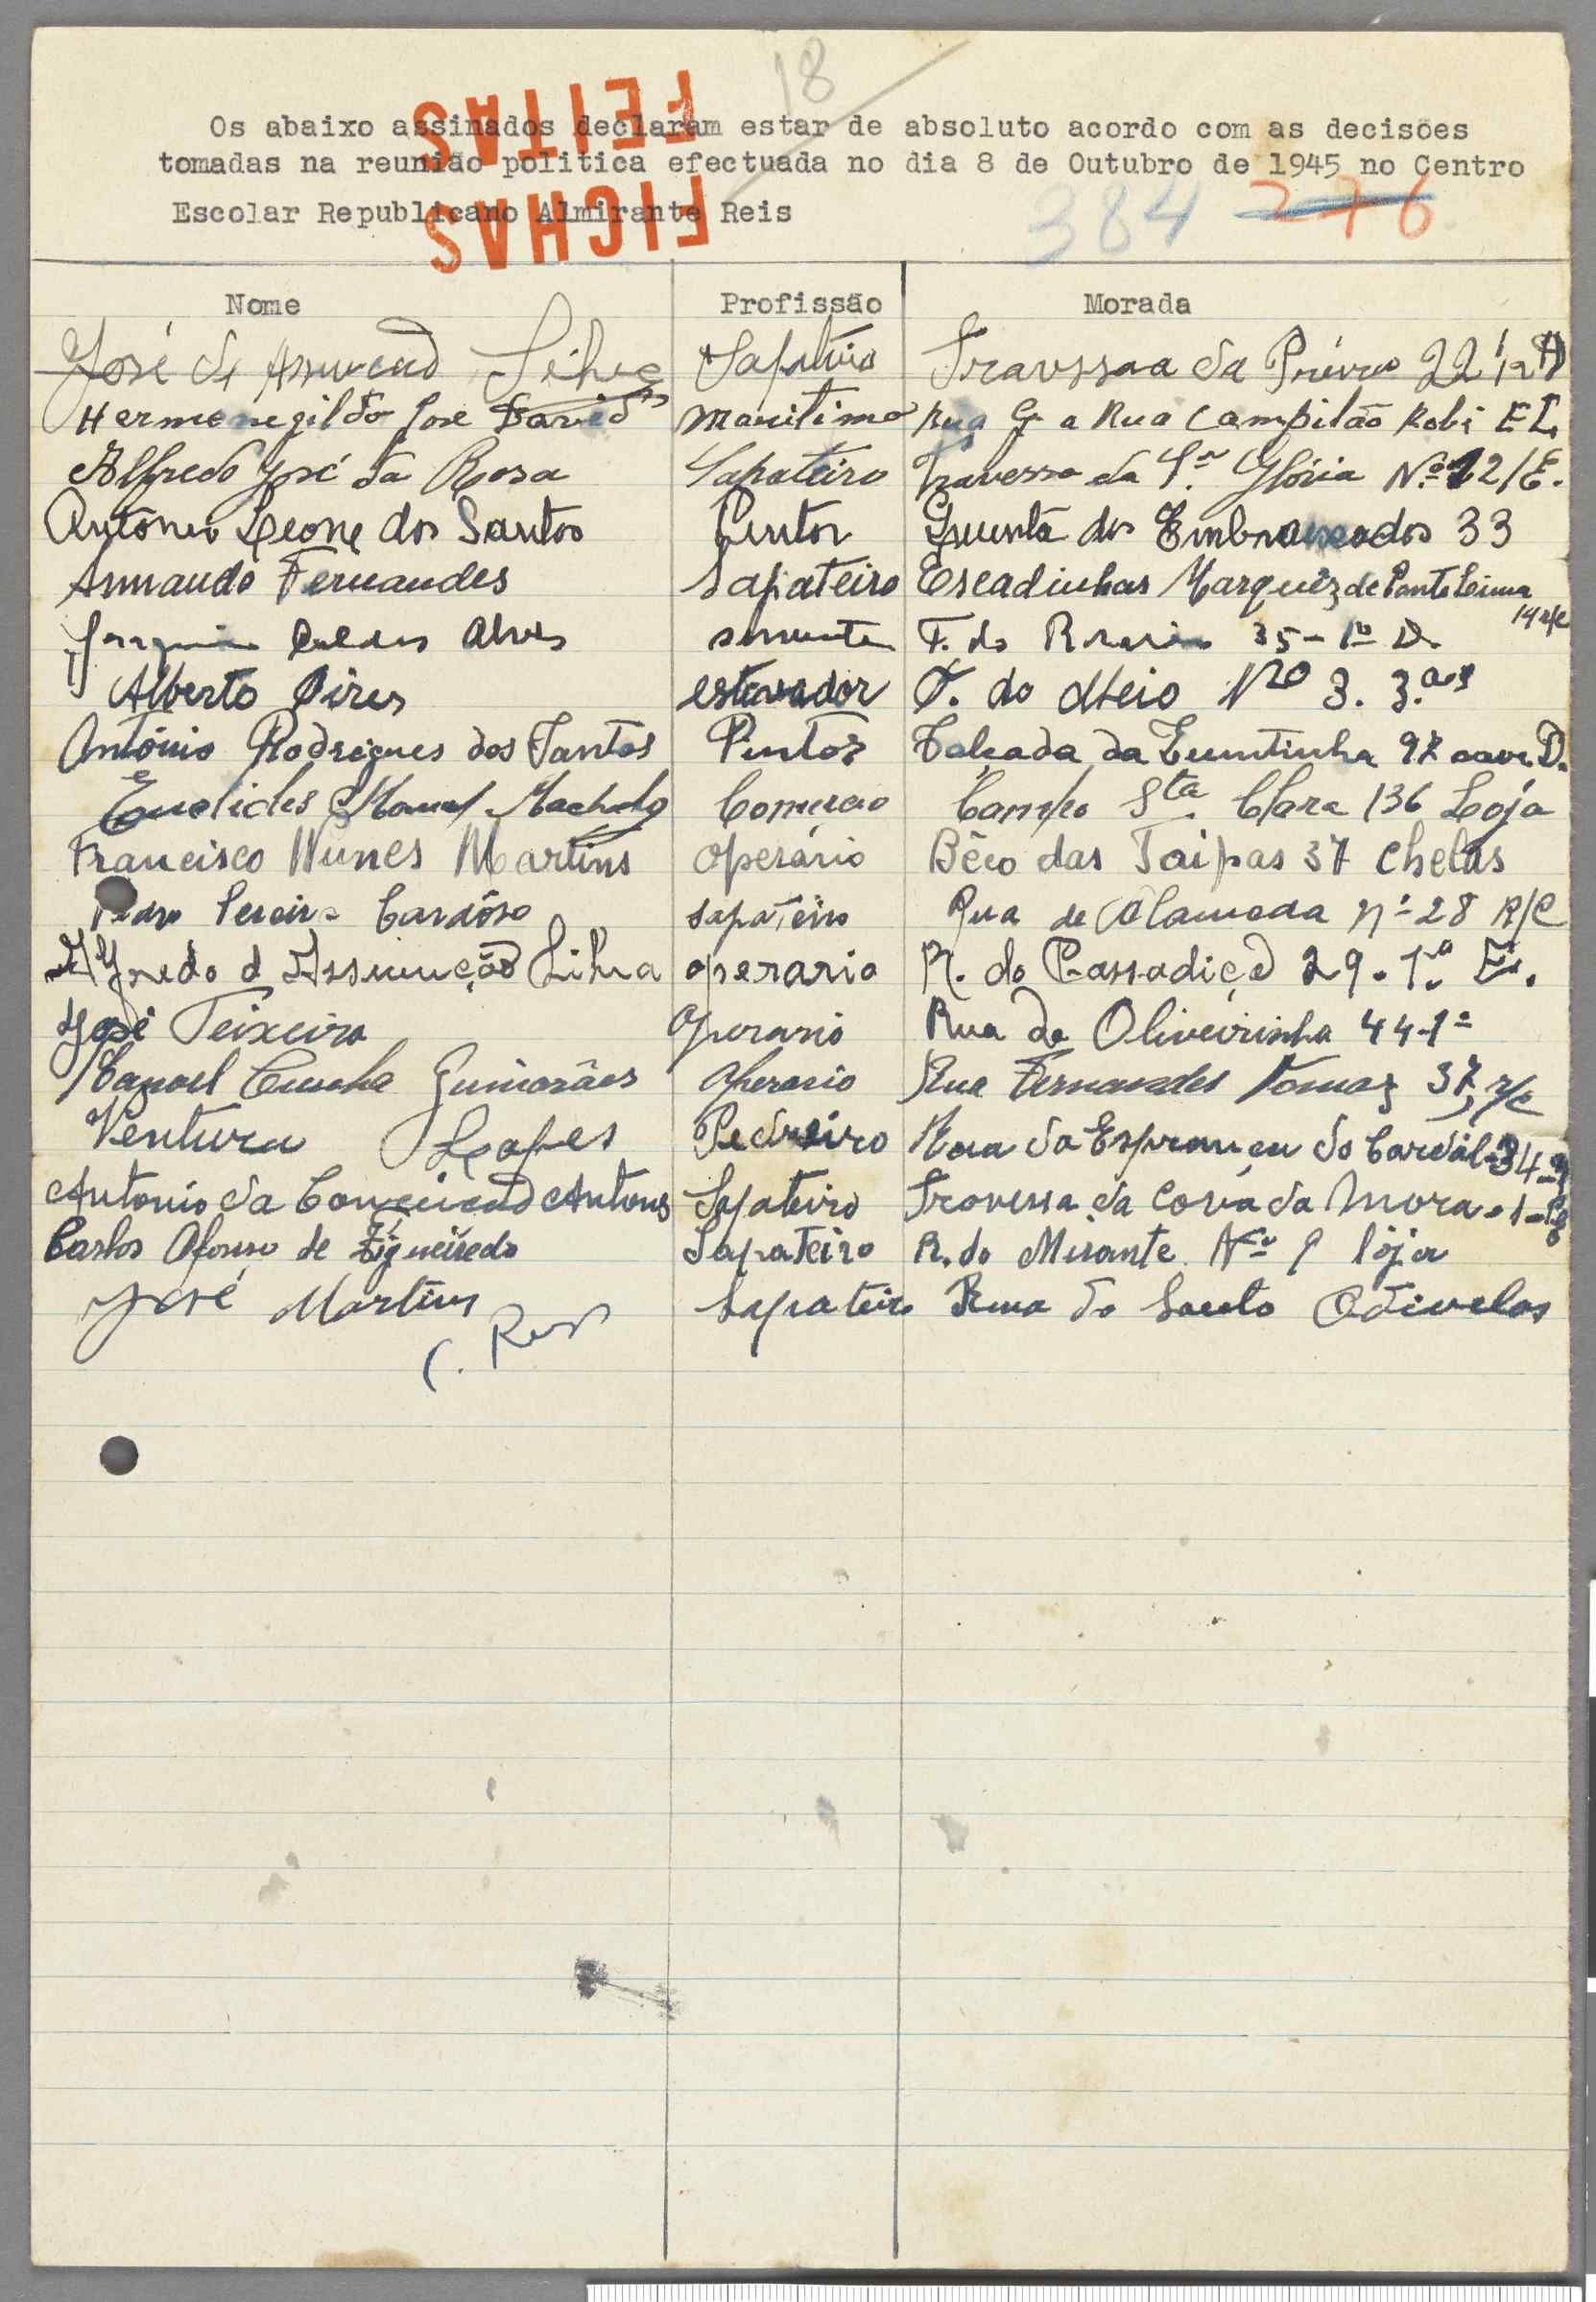 18
FICHAS
FEITAS
Os abaixo assinados declaram estar de absoluto acordo com as decisões
tomadas na reunião politica efectuada no dia 8 de Outubro de 1945 no Centro
Escolar Republicano Almirante Reis
384 276
Nome Profissão Morada
José de Silva Sapateiro da 22
Hermenegildo José David Maritimo Rua G a Rua Campitão Robi
Alfredo José da Rosa Sapateiro Travessa da Glória Nº 12/E.
António Leone dos Santos Pintor Quinta dos Embrexados 33
Armando Fernandes Sapateiro Escadinhas Marquêz de Ponte Lima
14 r/c
Alves servente T. do 35-1º D.
Alberto Pires estivador T. do Meio Nº 3. 3.
António Rodrigues dos Santos Pintor Calçada da 97 cave D.
Euclides Manuel Machado Comercio Campo Sta Clara 136 Loja
Francisco Nunes Martins operário Bêco das Taipas 37 Chelas
Pedro Pereira Cardôso sapateiro Rua de Alameda nº 28 R/C
Alfredo d Assunção Silva operario R. do Passadiço 29-1º E.
José Teixeira Operario Rua da Oliveirinha 44-1º
Manoel Cunha Guimarães Operario Rua Fernandes Tomaz 37, r/c
Ventura Lopes Pedreiro da do Cardal-34
Antonio da Conceicão Antunes Sapateiro Trovessa da Cova da Mora-1-
Carlos Afonso de Figueiredo Sapateiro R. do Mirante Nº 9 lója
José Martins Sapateiro Rua do Souto Odivelas